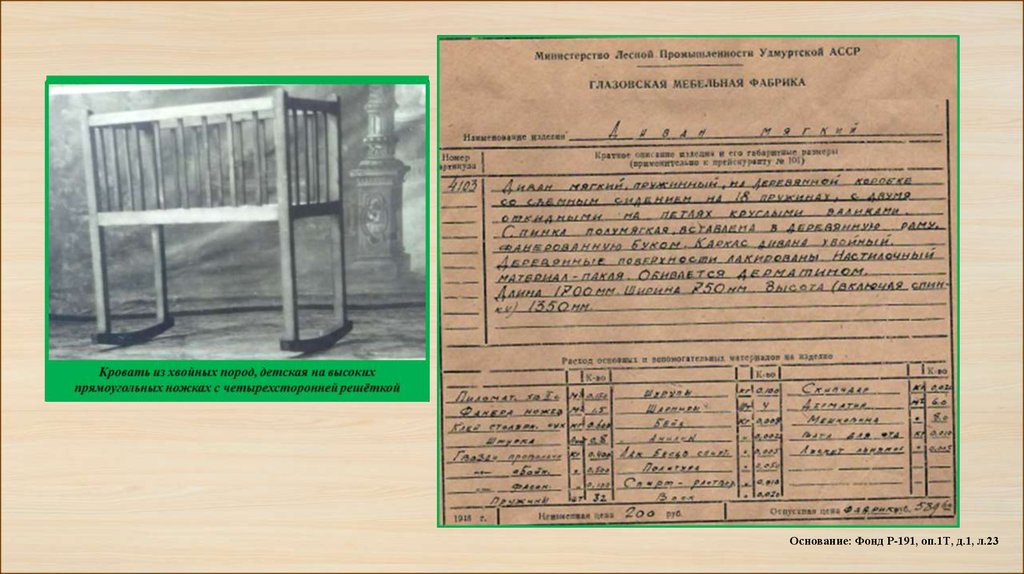 Кровать из хвойных пород, детская на высоких
прямоугольных ножках с четырехсторонней решёткой
Министерство Лесной Промышленности Удмуртской АССР
ГЛАЗОВСКАЯ МЕБЕЛЬНАЯ ФАБРИКА
Наименование изделия Диван мягкий
Номер артикула
Краткое описание изделия и его габаритные размеры
(применительно к прейскуранту № 101)
4103 Диван мягкий, пружинный, на деревянной коробке
со съемным сидением на 18 пружинах, с двумя
откидными на петлях круглыми валиками.
Спинка полумягкая, вставлена в деревянную раму,
фанерованную буком. Каркас дивана хвойный.
Деревянные поверхности лакированы. Настилочный
материал-пакля. Обивается дерматином.
Длина 1700мм. Ширина 750мм Высота (включая спин-
ку) 1350мм.
Расход основных и вспомогательных материалов на изделие
К-во К-во К-во
Пиломат. хв М³ Шурупы кг 0,100 Скипидар кг
Фанера ножев М² 1,5 Шарниры шт 4 Дерматин М² 6.0
Клей столярн. кг Бейц кг Мешковина " 8.0
Шкурка 0,8 Анилин " Вата для кг
Гвозди проволочн кг 0,400 Лак " 0,005
" обойн. " 0,500 Политура " 0,050
" " Спирт-
Пружины шт 32 Воск "
1948 г. Неизменная цена 200 руб. Отпускная цена фабрики
Основание: Фонд Р-191, оп.1Т, д.1, л.23